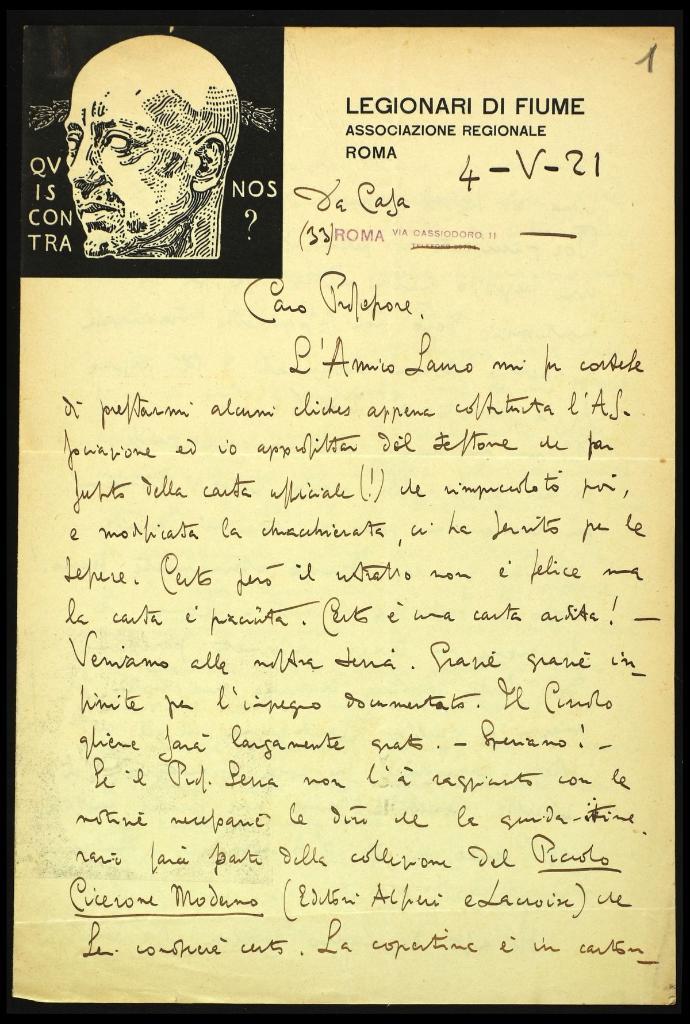 1
LEGIONARI DI FIUME
ASSOCIAZIONE REGIONALE
ROMA
4-V-21
QV
IS
CON
TRA
NOS
?
Da Casa
(33) ROMA VIA CASSIODORO, 11
TELEFONO
Caro Professore.
L'Amico Lauro mi fu cortese
di prestarmi alcuni cliches appena costituita l'As-
sociazione ed io approfittai del testone che fa
subito della carta ufficiale (!) che rimpicciolito poi,
e modificata la chiacchierata, ci ha servito per le
tessere. Certo però il ritratto non è felice ma
la carta è piaciuta. Certo è una carta ardita! —
Veniamo alla nostra Serra. Grazie grazie in-
finite per l'impegno documentato. Il Circolo
gliene sarà largamente grato. —
Se il Prof. Serra non l'à ragguagliato con le
notizie necessarie le dirò che la guida-itine
rario farà parte della collezione del Piccolo
Cicerone Moderno (Editori Alfieri e Lacroix) che
Lei conoscerà certo. La copertina è in carton-